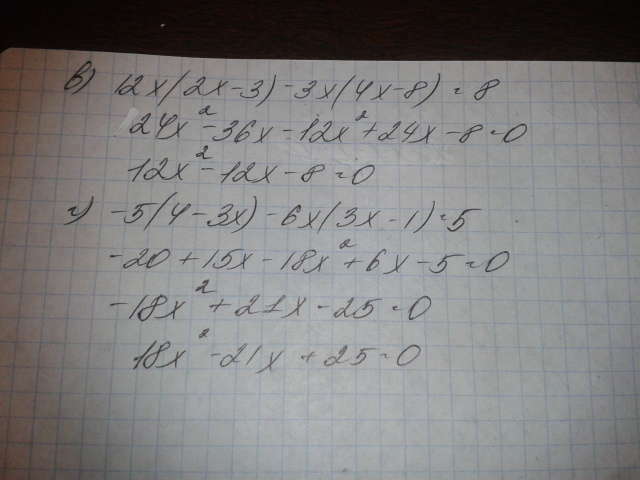 в) 12x(2x-3)-3x(4x-8)=8
24x²-36x-12x²+24x-8=0
12x²-12x-8=0
г) -5(4-3x)-6x(3x-1)=5
-20+15x-18x²+6x-5=0
-18x²+21x-25=0
18x²-21x+25=0